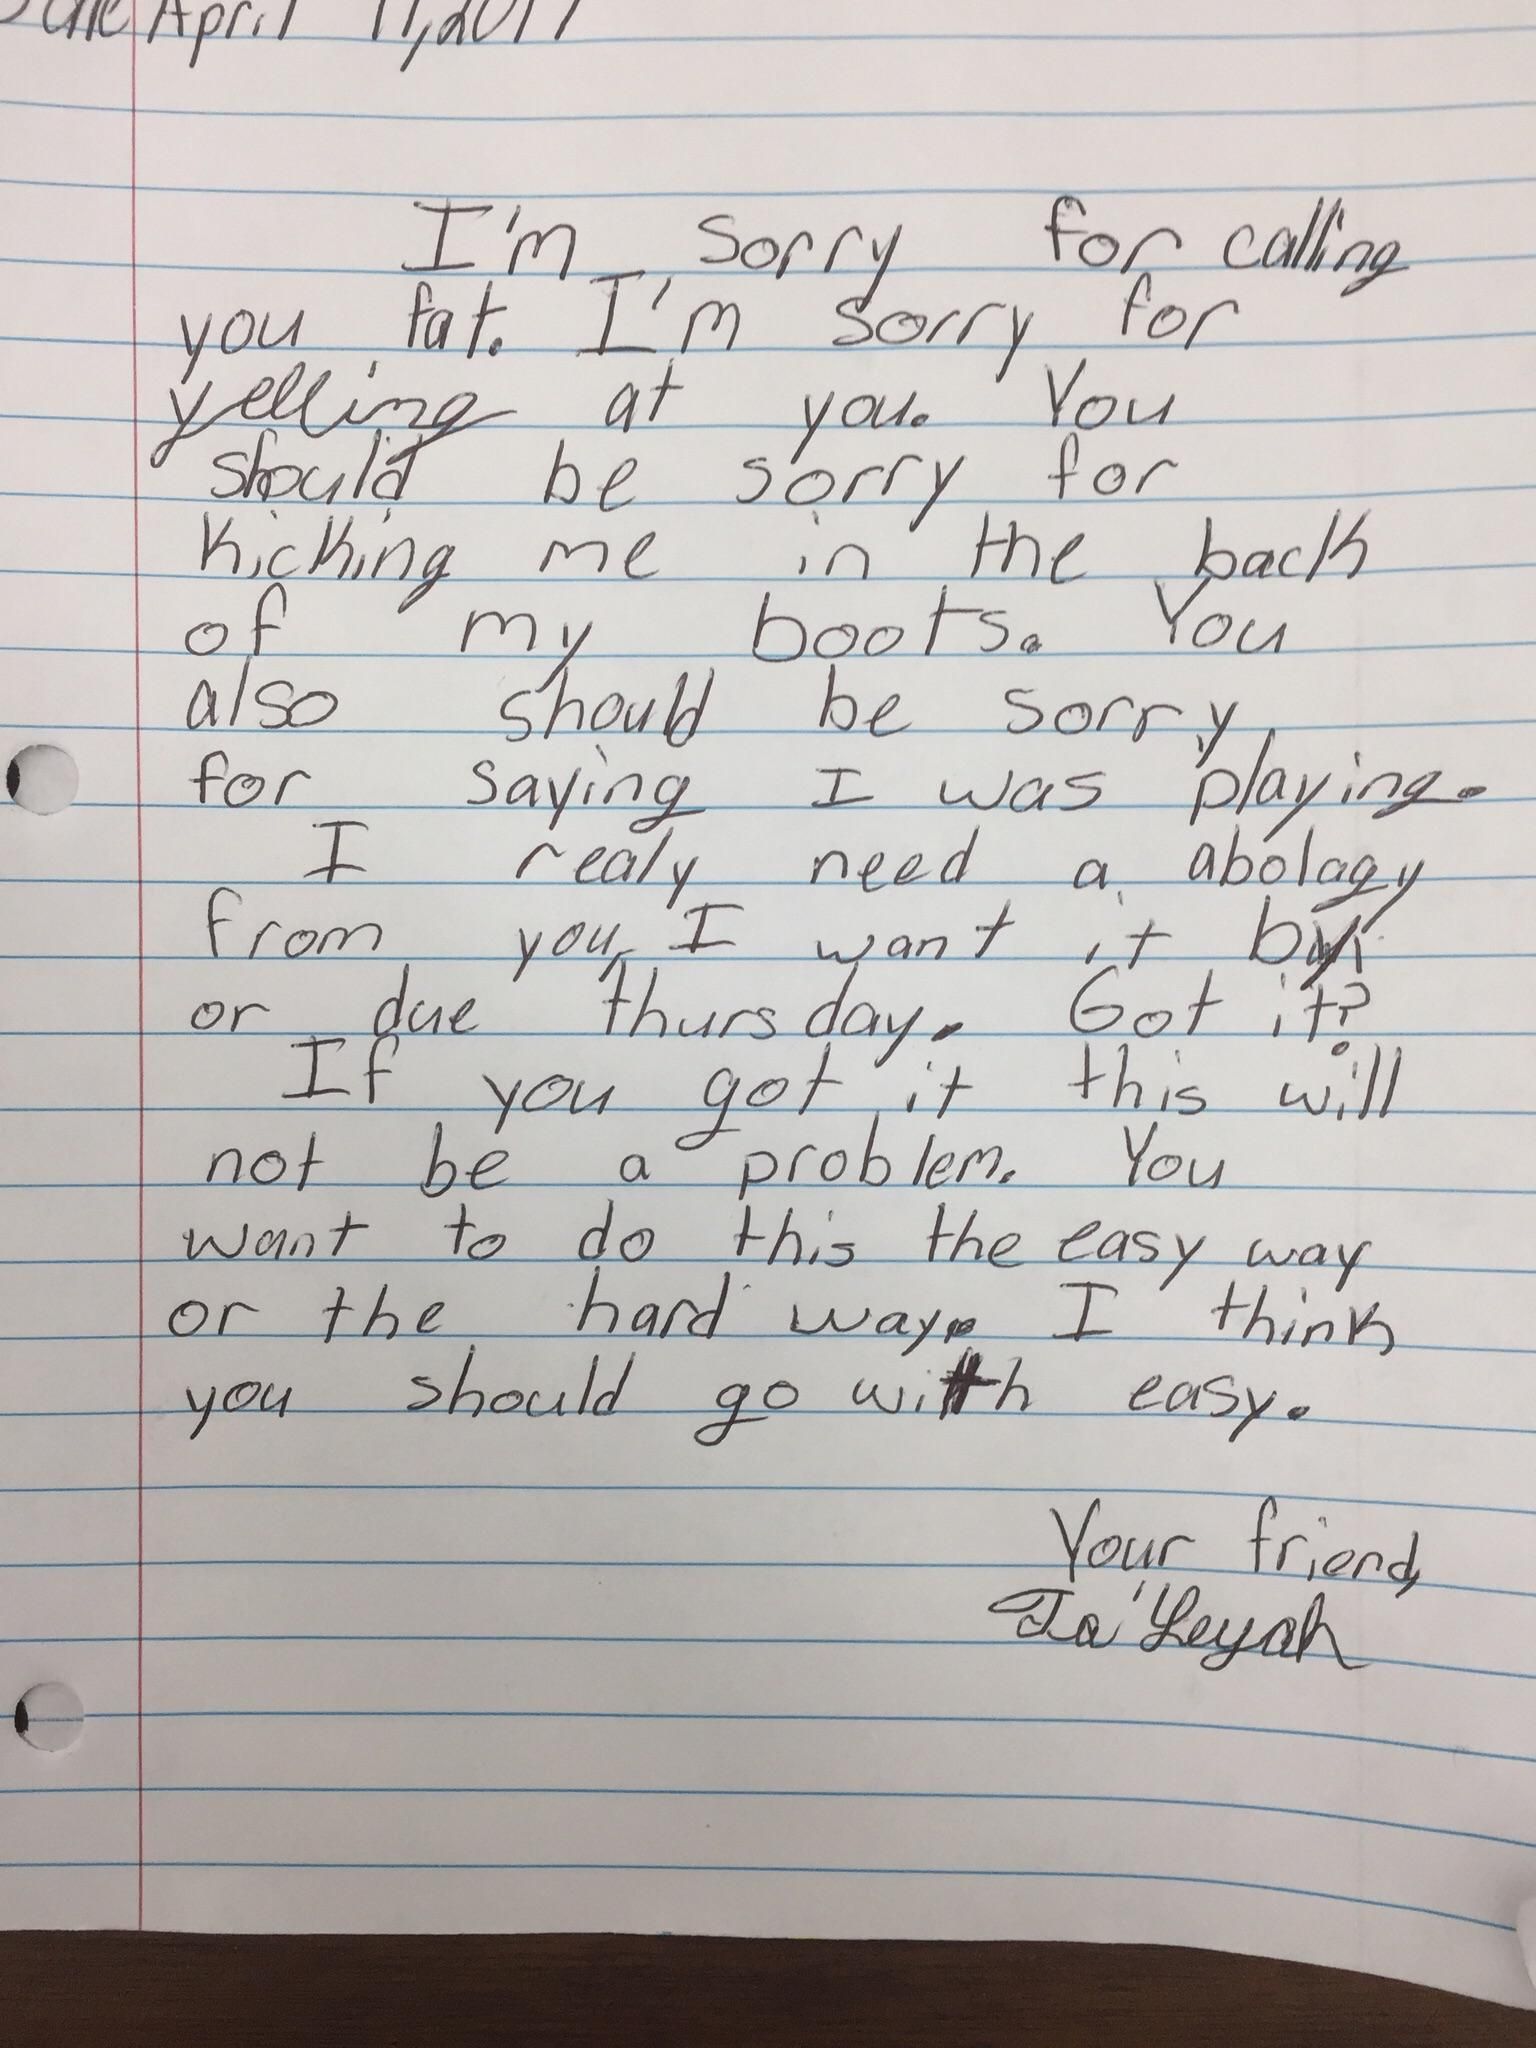 Date April 11, 2017
I'm sorry for calling
you fat. I'm sorry for
yelling at you. You
should be sorry for
kicking me in the back
of my boots. You
also should be sorry
for saying I was playing.
I realy need a abolagy
from you, I want it by
or due thursday. Got it?
If you got it this will
not be a problem. You
want to do this the easy way
or the hard way. I think
you should go with easy.
Your friend,
Ja'Leyah